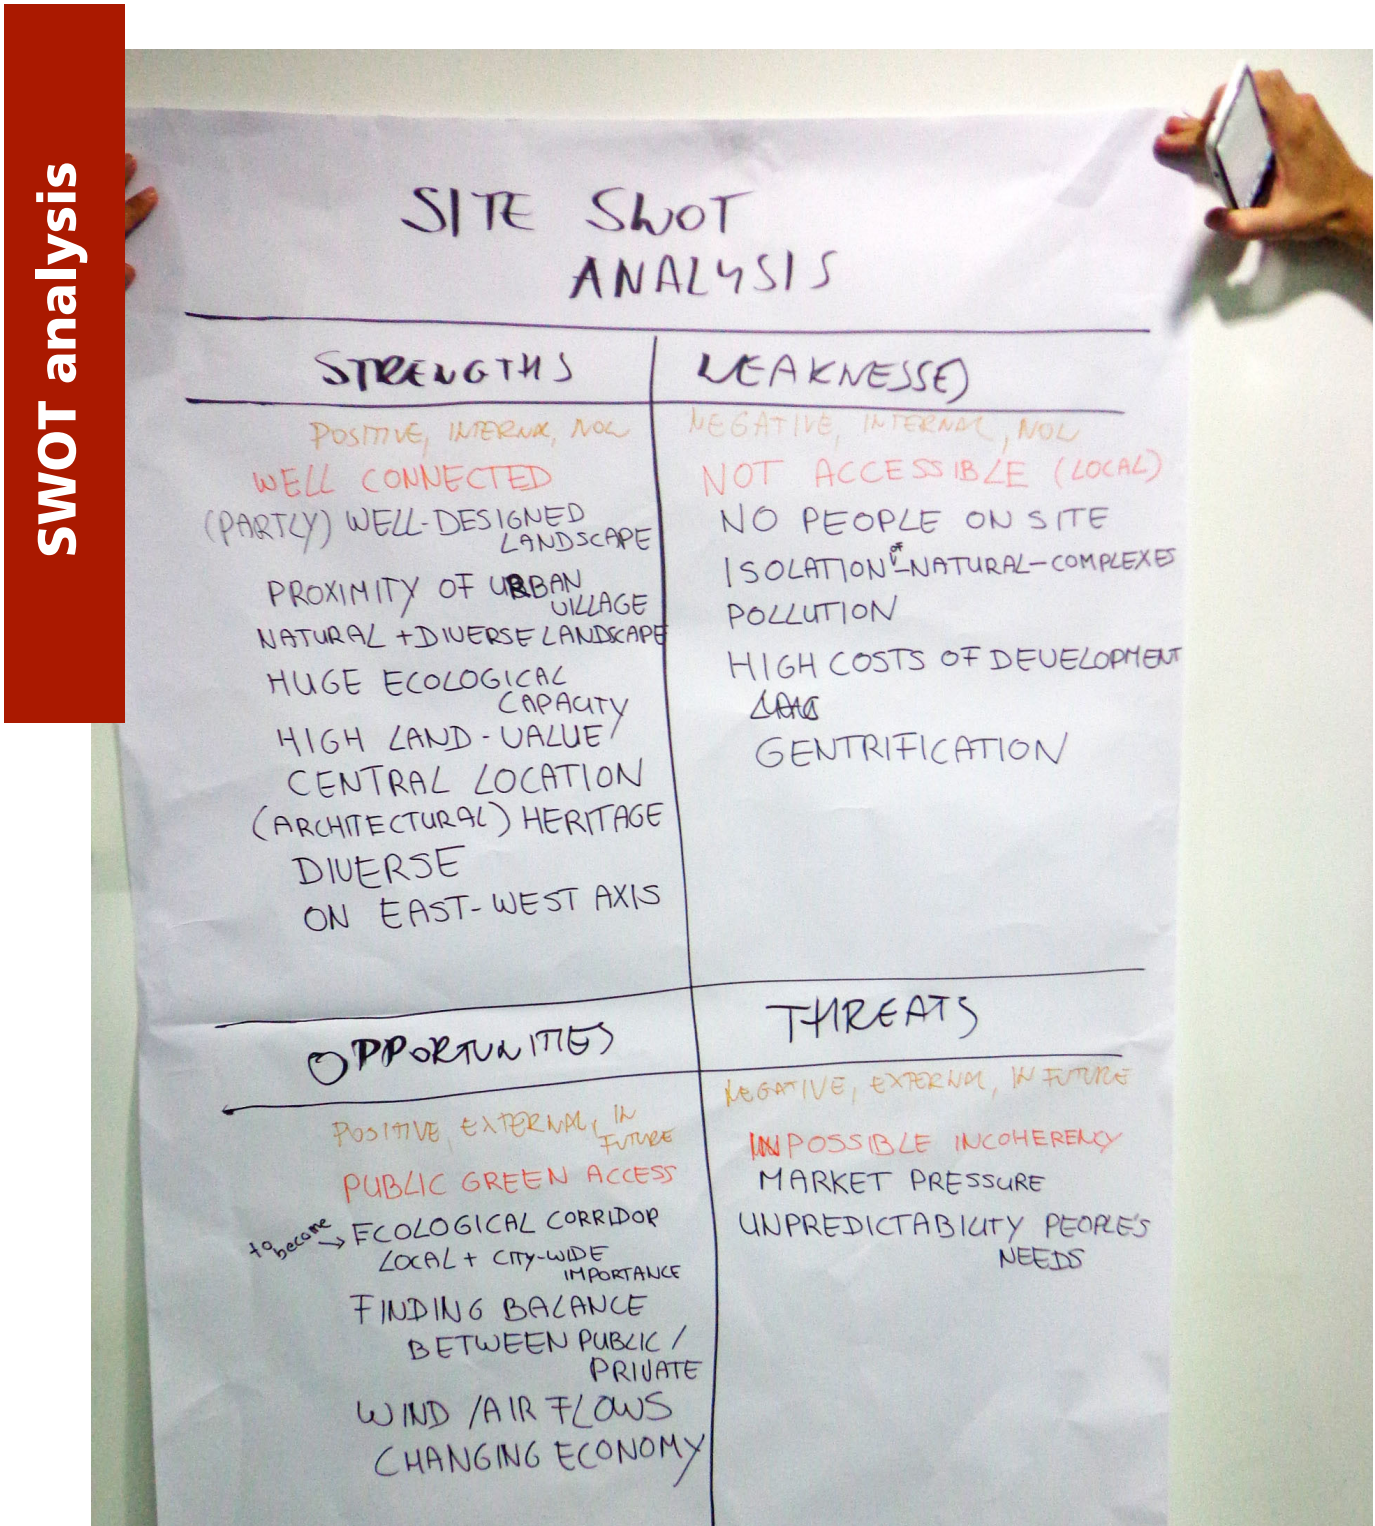 SWOT analysis
SITE SWOT
ANALYSIS
STRENGTHS
POSITIVE, INTERNAL, NOW
WELL CONNECTED
(PARTLY) WELL-DESIGNED
LANDSCAPE
PROXIMITY OF URBAN
VILLAGE
NATURAL + DIVERSE LANDSCAPE
HUGE ECOLOGICAL
CAPACITY
HIGH LAND-VALUE
CENTRAL LOCATION
(ARCHITECTURAL) HERITAGE
DIVERSE
ON EAST-WEST AXIS
WEAKNESSES
NEGATIVE, INTERNAL, NOW
NOT ACCESSIBLE (LOCAL)
NO PEOPLE ON SITE
ISOLATION OF NATURAL-COMPLEXES
POLLUTION
HIGH COSTS OF DEVELOPMENT
GENTRIFICATION
OPPORTUNITIES
POSITIVE, EXTERNAL, IN
FUTURE
PUBLIC GREEN ACCESS
to become → ECOLOGICAL CORRIDOR
LOCAL + CITY-WIDE
IMPORTANCE
FINDING BALANCE
BETWEEN PUBLIC /
PRIVATE
WIND / AIR FLOWS
CHANGING ECONOMY
THREATS
NEGATIVE, EXTERNAL, IN FUTURE
POSSIBLE INCOHERENCY
MARKET PRESSURE
UNPREDICTABILITY PEOPLE'S
NEEDS